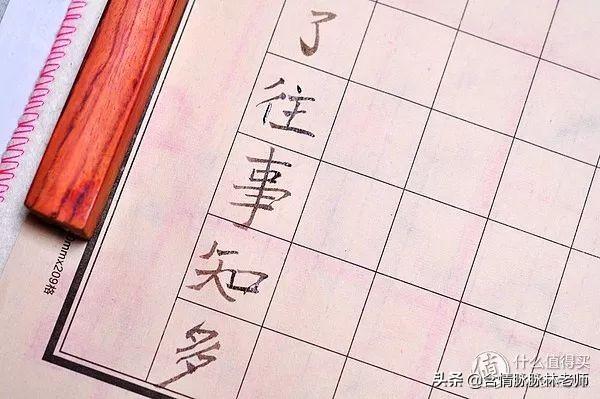 了往事知多
mmx209格
值 什么值得买
头条 @含情脉脉林老师